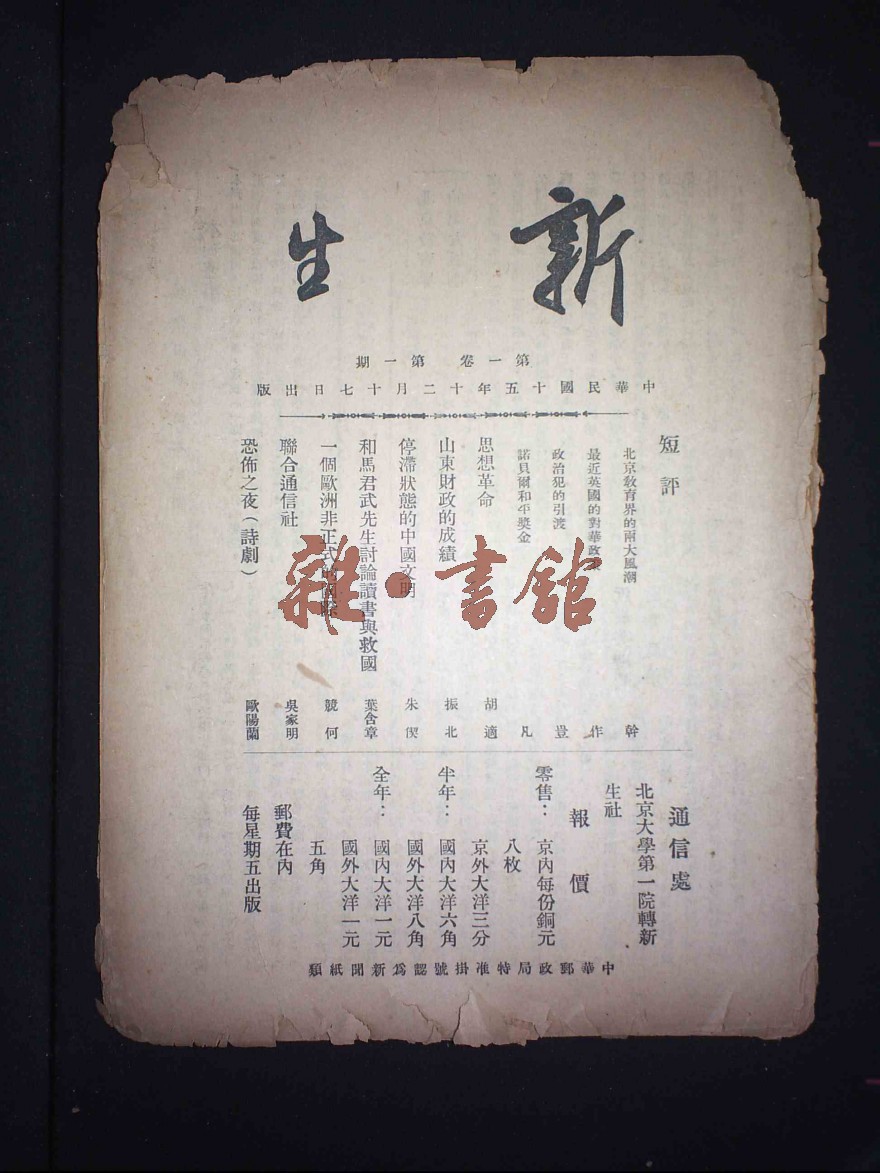 新生
第一卷 第一期
中華民國十五年十二月十七日出版
短評
北京教育界的兩大風潮 幹
最近英國的對華政策 作
政治犯的引渡 豈
諾貝爾和平獎金 凡
思想革命 胡適
山東財政的成績 振北
停滯狀態的中國文明 朱偰
和馬君武先生討論讀書與救國 葉含章
一個歐洲非正式的國際 競何
聯合通信社 吳家明
恐佈之夜(詩劇) 歐陽蘭
通信處
北京大學第一院轉新
生社
報價
零售:京內每份銅元
八枚
京外大洋三分
半年:國內大洋六角
國外大洋八角
全年:國內大洋一元
國外大洋一元
五角
郵費在內
每星期五出版
中華郵政局特准掛號認爲新聞紙類
雜·書館